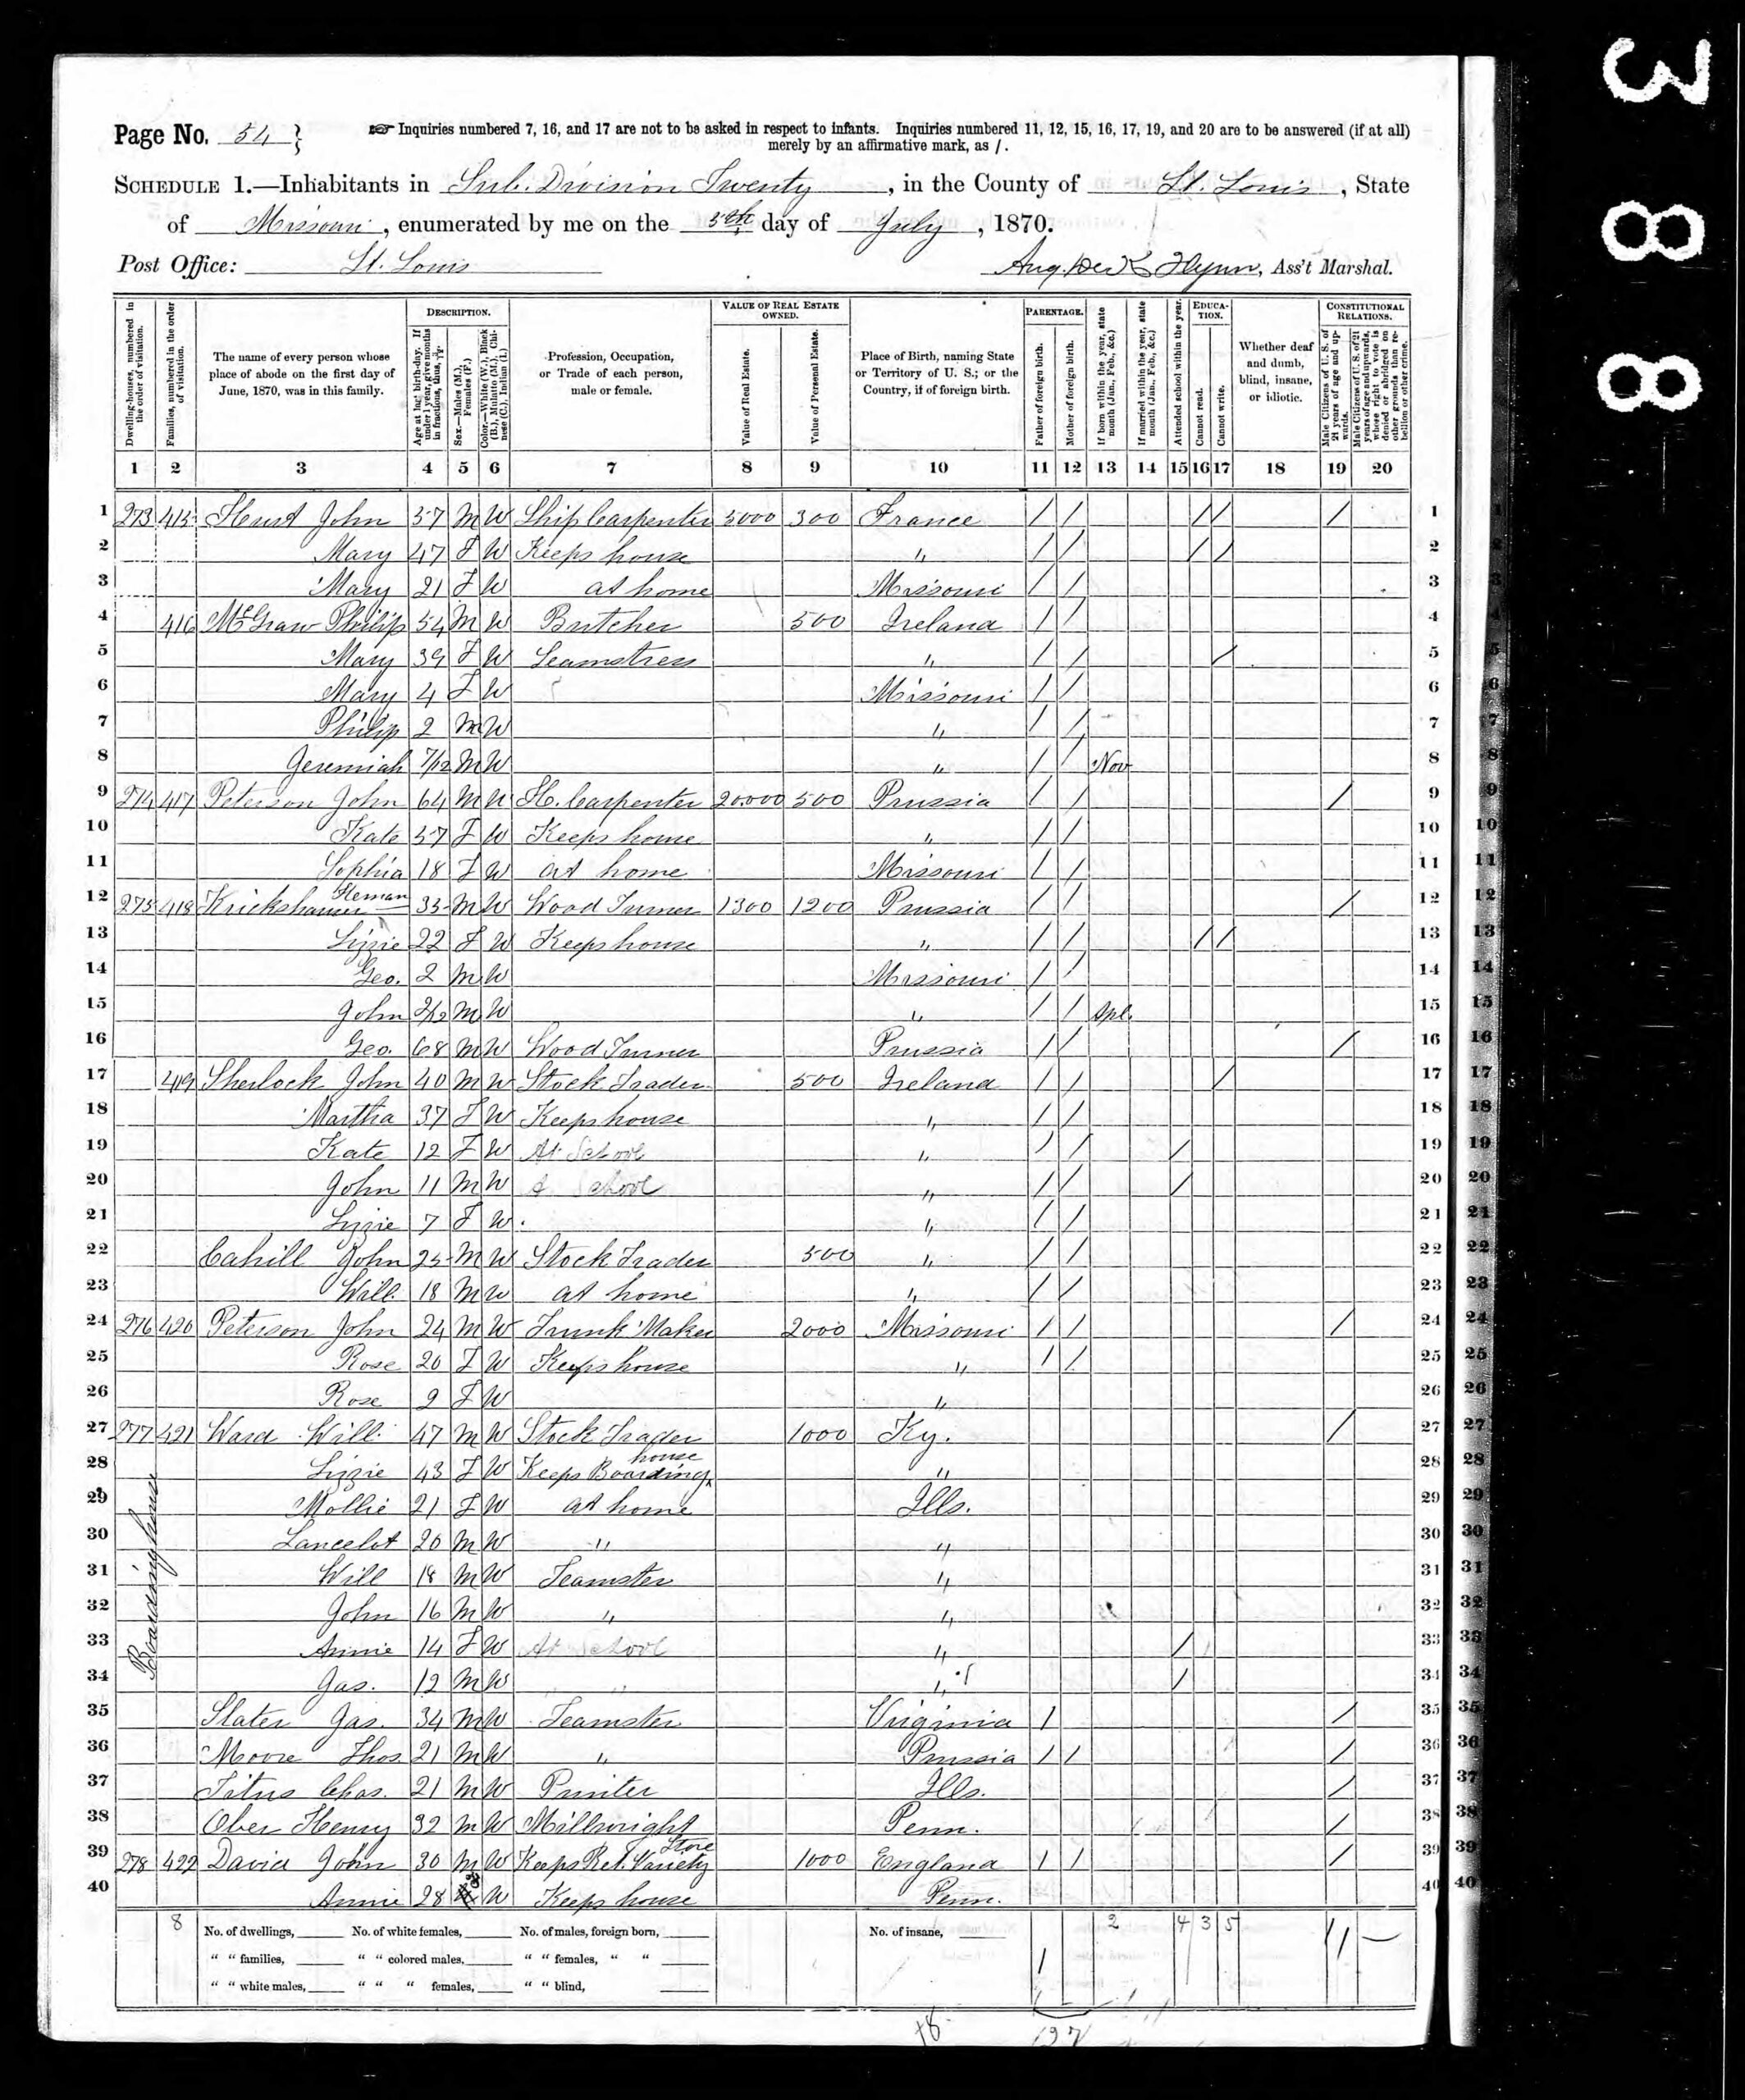 388
Page No. 54 }
☞ Inquiries numbered 7, 16, and 17 are not to be asked in respect to infants. Inquiries numbered 11, 12, 15, 16, 17, 19, and 20 are to be answered (if at all)
merely by an affirmative mark, as /.
SCHEDULE 1.—Inhabitants in Sub. Division Twenty, in the County of St. Louis, State
of Missouri, enumerated by me on the 5th day of July, 1870.
Post Office: St. Louis
Flynn, Ass't Marshal.
Dwelling-houses, numbered in the order of visitation.
Families, numbered in the order of visitation.
The name of every person whose place of abode on the first day of June, 1870, was in this family.
DESCRIPTION.
Age at last birth-day. If under 1 year, give months in fractions, thus, 3/12.
Sex.—Males (M.), Females (F.)
Color.—White (W.), Black (B.), Mulatto (M.), Chinese (C.), Indian (I.)
Profession, Occupation, or Trade of each person, male or female.
VALUE OF REAL ESTATE OWNED.
Value of Real Estate.
Value of Personal Estate.
Place of Birth, naming State or Territory of U. S.; or the Country, if of foreign birth.
PARENTAGE.
Father of foreign birth.
Mother of foreign birth.
If born within the year, state month (Jan., Feb., &c.)
If married within the year, state month (Jan., Feb., &c.)
Attended school within the year.
EDUCATION.
Cannot read.
Cannot write.
Whether deaf and dumb, blind, insane, or idiotic.
CONSTITUTIONAL RELATIONS.
Male Citizens of U. S. of 21 years of age and upwards.
Male Citizens of U. S. of 21 years of age and upwards, whose right to vote is denied or abridged on other grounds than rebellion or other crime.
1 2 3 4 5 6 7 8 9 10 11 12 13 14 15 16 17 18 19 20
1 273 415 John 57 M W Ship Carpenter 5000 300 France / / / / / 1
2 Mary 47 F W Keeps house " / / / / 2
3 Mary 21 F W at home Missouri / / 3
4 416 McGraw Philip 54 M W Butcher 500 Ireland / / 4
5 Mary 39 F W Seamstress " / / / 5
6 Mary 4 F W Missouri / / 6
7 Philip 2 M W " / / 7
8 Jeremiah 7/12 M W " / / Nov 8
9 274 417 Peterson John 64 M W H. Carpenter 20000 500 Prussia / / / 9
10 Kate 57 F W Keeps house " / / 10
11 Sophia 18 F W at home Missouri / / 11
12 275 418 Krickshauser Heman 35 M W Wood Turner 1300 1200 Prussia / / / 12
13 Lizzie 22 F W Keeps house " / / / / 13
14 Geo. 2 M W Missouri / / 14
15 John 2/12 M W " / / Apl. 15
16 Geo. 68 M W Wood Turner Prussia / / / 16
17 419 Sherlock John 40 M W Stock Trader 500 Ireland / / / 17
18 Martha 37 F W Keeps house " / / 18
19 Kate 12 F W At School " / / / 19
20 John 11 M W School " / / / 20
21 Lizzie 7 F W " / / 21
22 Cahill John 25 M W Stock Trader 500 " / / 22
23 Will. 18 M W at home " / / 23
24 276 420 Peterson John 24 M W Trunk Maker 2000 Missouri / / / 24
25 Rose 20 F W Keeps house " / / 25
26 Rose 2 F W " 26
27 277 421 Ward Will. 47 M W Stock Trader 1000 Ky. / 27
28 Lizzie 43 F W Keeps Boarding house " 28
29 Mollie 21 F W at home Ills. 29
30 Lancelot 20 M W " " 30
31 Will 18 M W Teamster " 31
32 John 16 M W " " 32
33 Annie 14 F W At School " / 33
34 Jas. 12 M W " " " / 34
Boarding house
35 Slater Jas. 34 M W Teamster Virginia / / 35
36 Moore Thos 21 M W " Prussia / / / 36
37 Titus Chas. 21 M W Printer Ills. / 37
38 Ober Henry 32 M W Millwright Penn. / 38
39 278 422 David John 30 M W Keeps Ret. Variety Store 1000 England / / / 39
40 Annie 28 W Keeps house Penn. 40
8 No. of dwellings, No. of white females, No. of males, foreign born, No. of insane, 2 4 3 5 11 —
" " families, " " colored males, " " females, " "
" " white males, " " " females, " " blind,